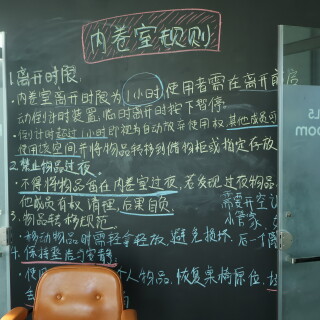 内卷室规则
1.离开时限:
·内卷室离开时限为1小时,使用者需在离开前启
动倒计时装置,临时离开时按下暂停。
·倒计时超过1小时即视为自动放弃使用权,其他成员可
使用该空间并将物品转移到储物柜或指定存放
2.禁止物品过夜。
·不得将物品留在内卷室过夜,若发现过夜物品,
他成员有权清理,后果自负。
3.物品转移规范
·移动物品时需轻拿轻放,避免损坏,后一个离
4.保持整洁与安静。
·使用 个人物品,恢复桌椅原位,
需要开空
小管家,